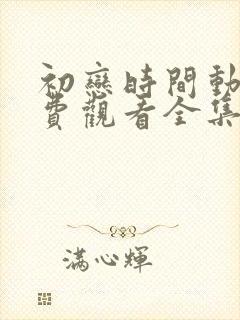 初戀時間動
費觀看全集
滿心輝